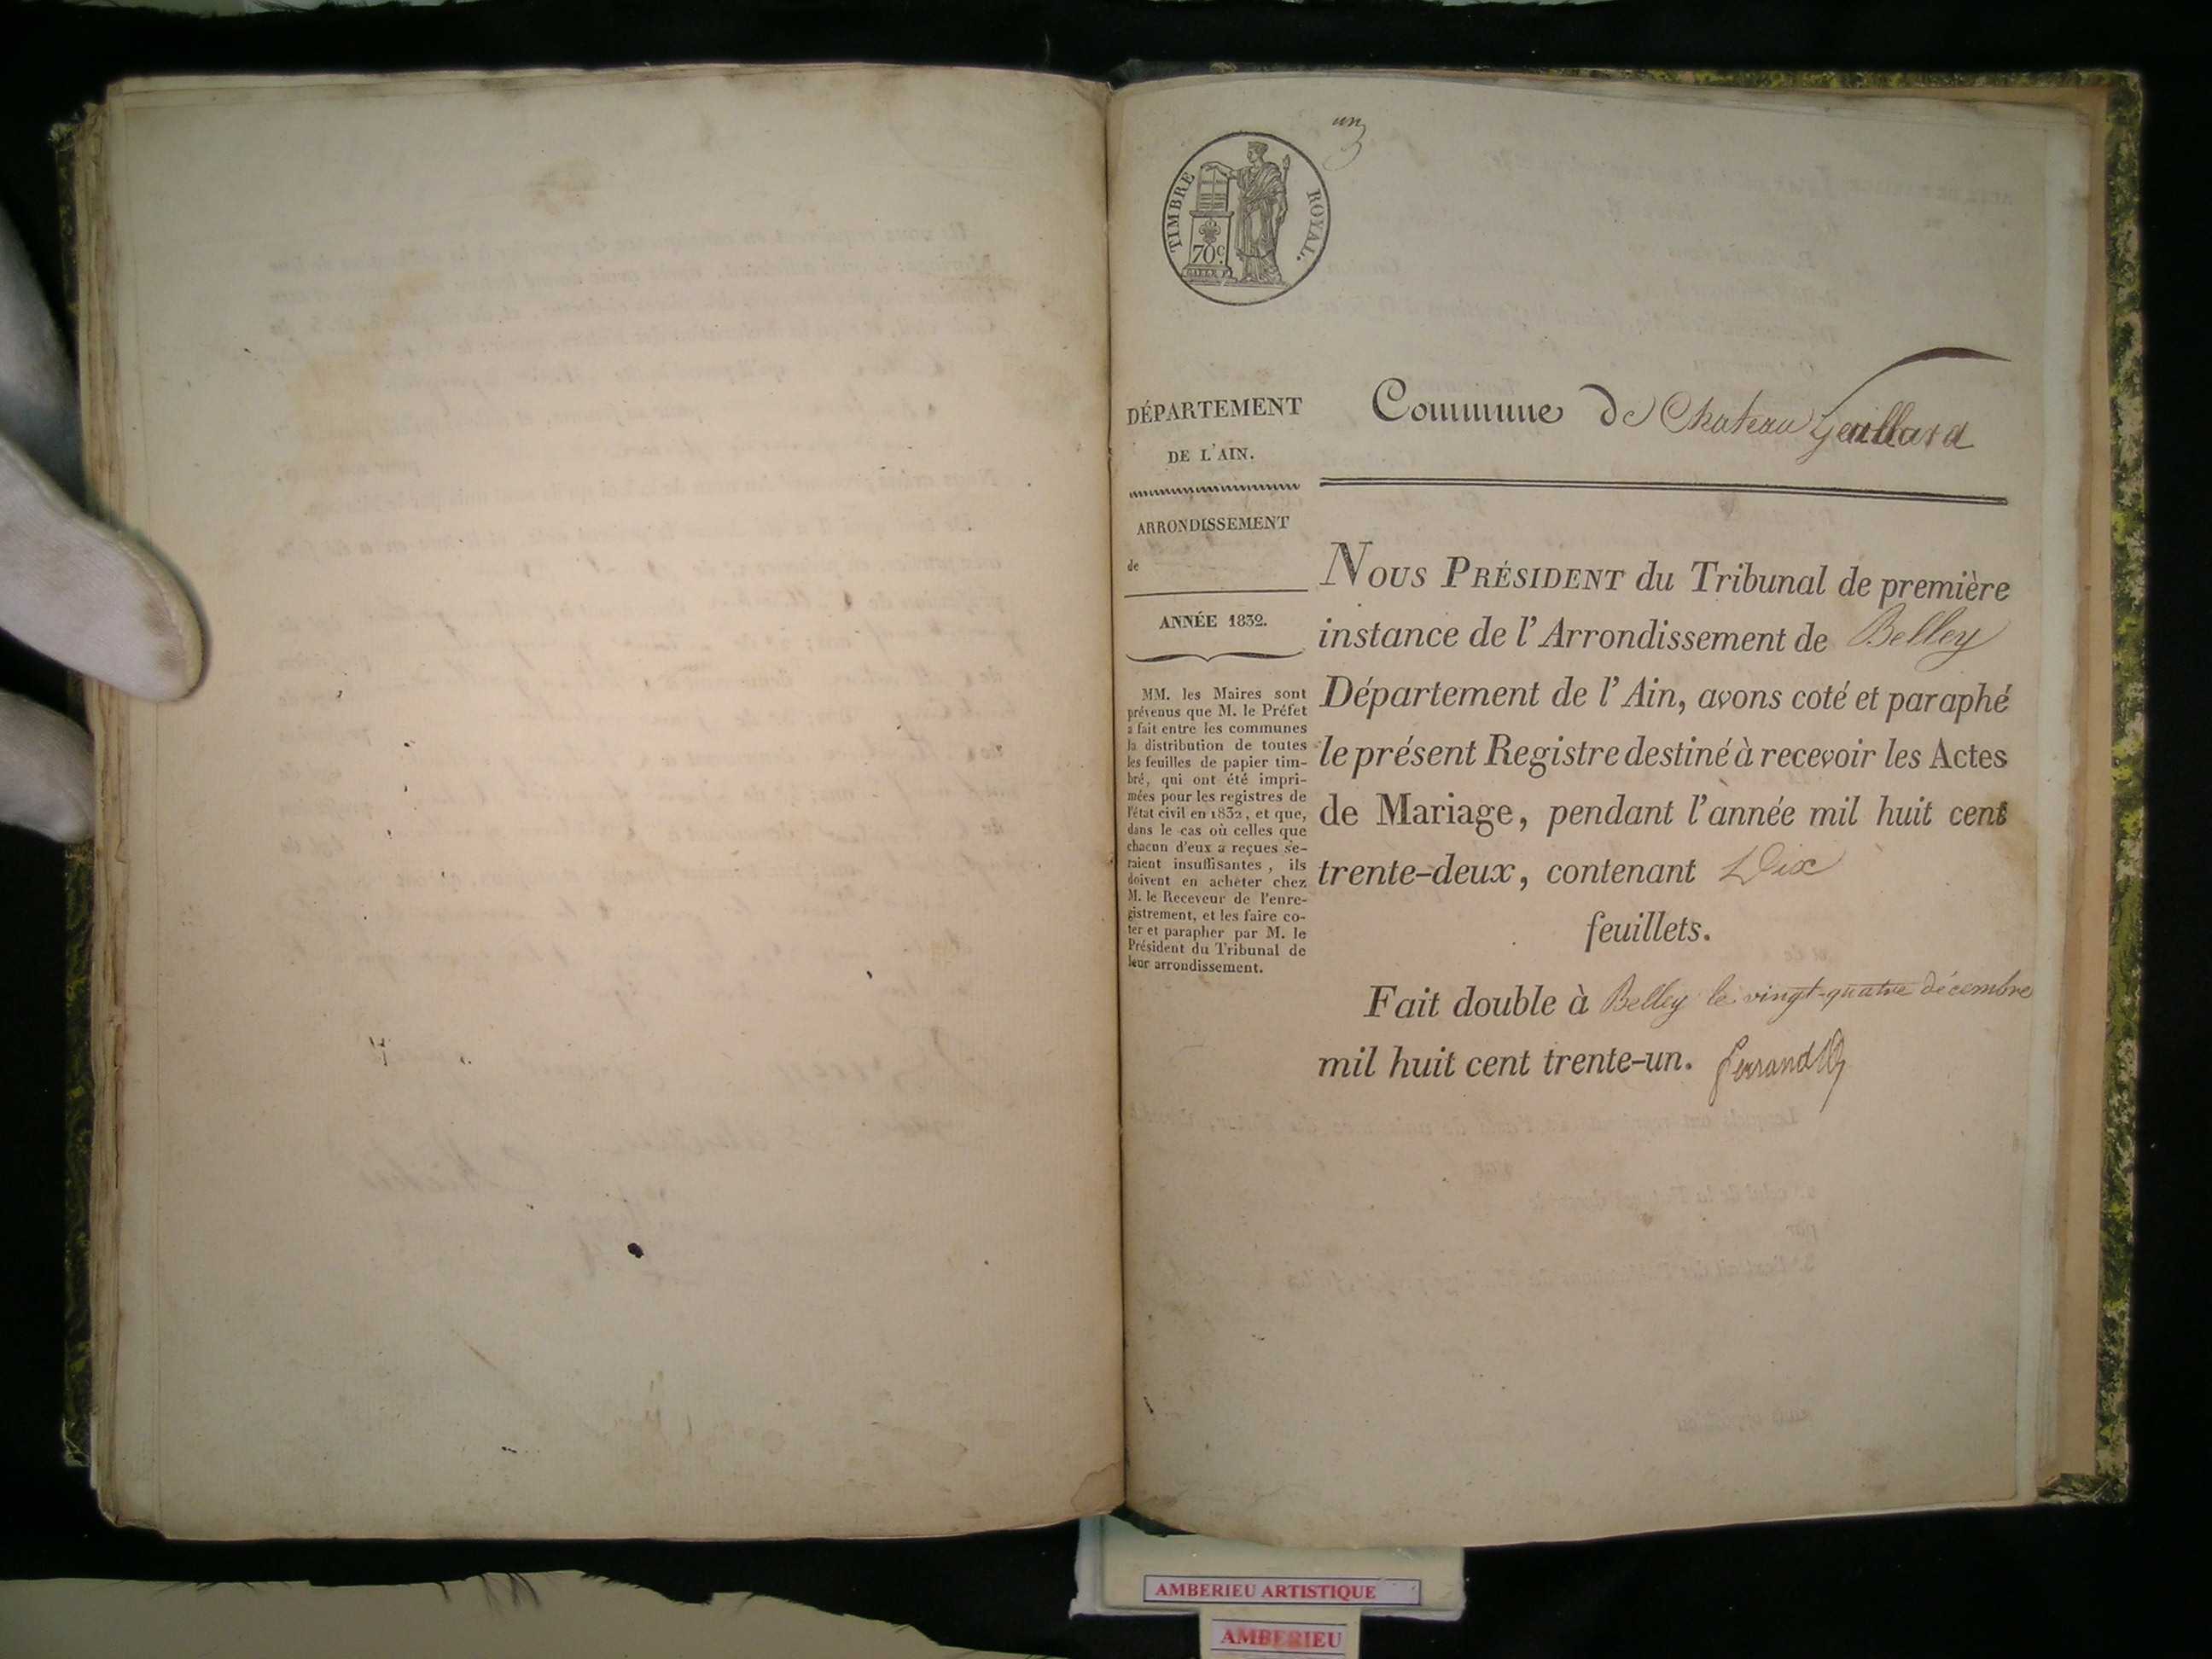 un
TIMBRE ROYAL.
70c.
DÉPARTEMENT
DE L'AIN.
ARRONDISSEMENT
de
ANNÉE 1832.
MM. les Maires sont
prévenus que M. le Préfet
a fait entre les communes
la distribution de toutes
les feuilles de papier tim-
bré, qui ont été impri-
mées pour les registres de
l'état civil en 1832, et que,
dans le cas où celles que
chacun d'eux a reçues se-
raient insuffisantes, ils
doivent en acheter chez
M. le Receveur de l'enre-
gistrement, et les faire co-
ter et parapher par M. le
Président du Tribunal de
leur arrondissement.
Commune de Chateau Gaillard
NOUS PRÉSIDENT du Tribunal de première
instance de l'Arrondissement de Belley
Département de l'Ain, avons coté et paraphé
le présent Registre destiné à recevoir les Actes
de Mariage, pendant l'année mil huit cent
trente-deux, contenant Dix
feuillets.
Fait double à Belley le vingt-quatre décembre
mil huit cent trente-un.
AMBERIEU ARTISTIQUE
AMBERIEU